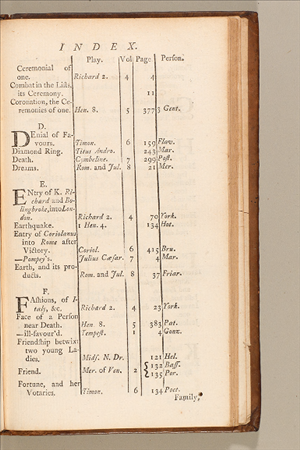 INDEX.
Play. Vol Page Person.
Ceremonial of
one. Richard 2. 4 4
Combat in the Lists,
its Ceremony. 11
Coronation, the Ce-
remonies of one. Hen. 8. 5 377 3 Gent.
D.
DEnial of Fa-
vours. Timon. 6 159 Flav.
Diamond Ring. Titus Andro. 243 Mar.
Death. Cymbeline. 7 299 Post.
Dreams. Rom. and Jul. 8 21 Mer.
E.
ENtry of K. Ri-
chard and Bo-
lingbroke, into Lon-
don. Richard 2. 4 70 York.
Earthquake. 1 Hen. 4. 134 Hot.
Entry of Coriolanus
into Rome after
Victory. Coriol. 6 415 Bru.
—Pompey's. Julius Cæsar. 7 4 Mar.
Earth, and its pro-
ducts. Rom. and Jul. 8 37 Friar.
F.
FAshions, of I-
taly, &c. Richard 2. 4 23 York.
Face of a Person
near Death. Hen. 8. 5 383 Pat.
—ill-favour'd. Tempest. 1 4 Gonz.
Friendship betwixt
two young La-
dies. Mids. N. Dr. 121 Hel.
Friend. Mer. of Ven. 2 { 132 Bass.
135 Por.
Fortune, and her
Votaries. Timon. 6 134 Poet.
Family,